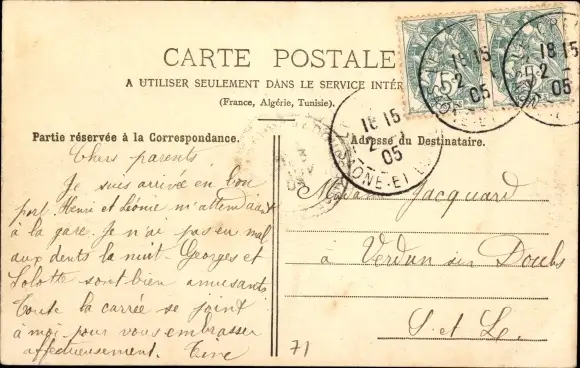 CARTE POSTALE
A UTILISER SEULEMENT DANS LE SERVICE INTÉR
(France, Algérie, Tunisie).
Partie réservée à la Correspondance.
Chers parents
Je suis arrivée en bon
port. Henri et Léonie m'attendaient
à la gare. Je n'ai pas eu mal
aux dents la nuit. Georges et
Lolotte sont bien amusants
Toute la carrée se joint
à moi pour vous embrasser
affectueusement. Tine
Adresse du Destinataire.
Madame Jacquard
à Verdun sur Doubs
S. et L.
71
5
18 15
2
05
SAONE-ET-L
18 15
2
05
18 15
2
05